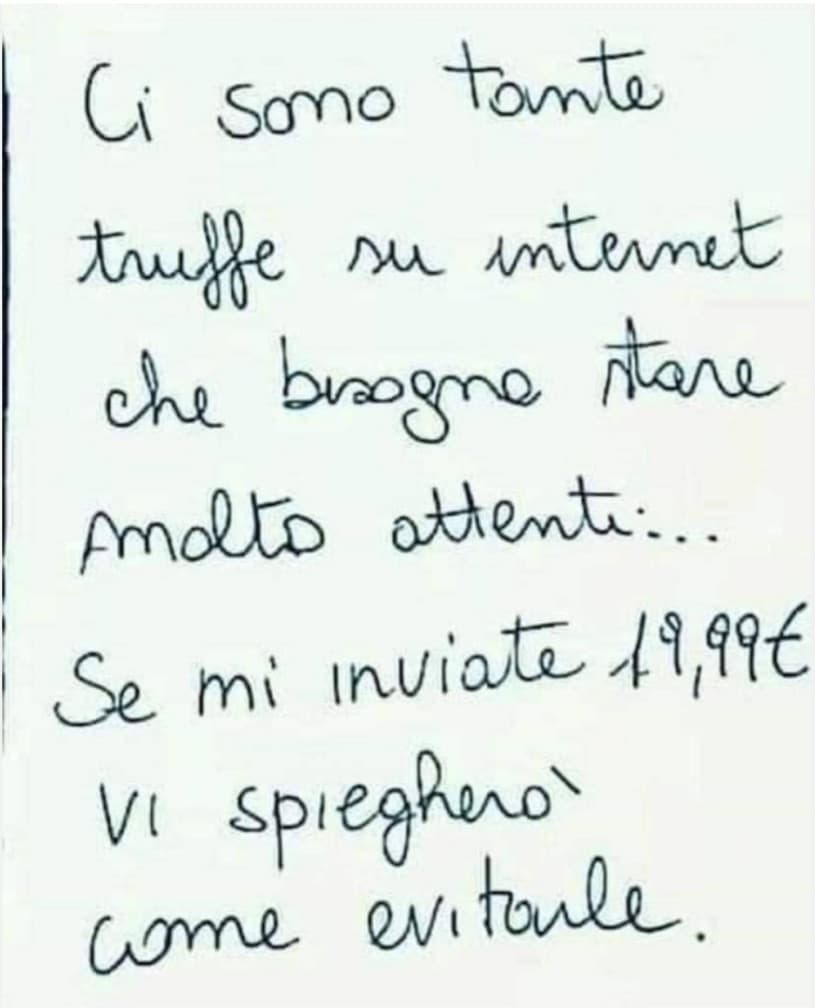 Ci sono tante
truffe su internet
che bisogna stare
molto attenti:...
Se mi inviate 19,99€
vi spiegherò
come evitarle.